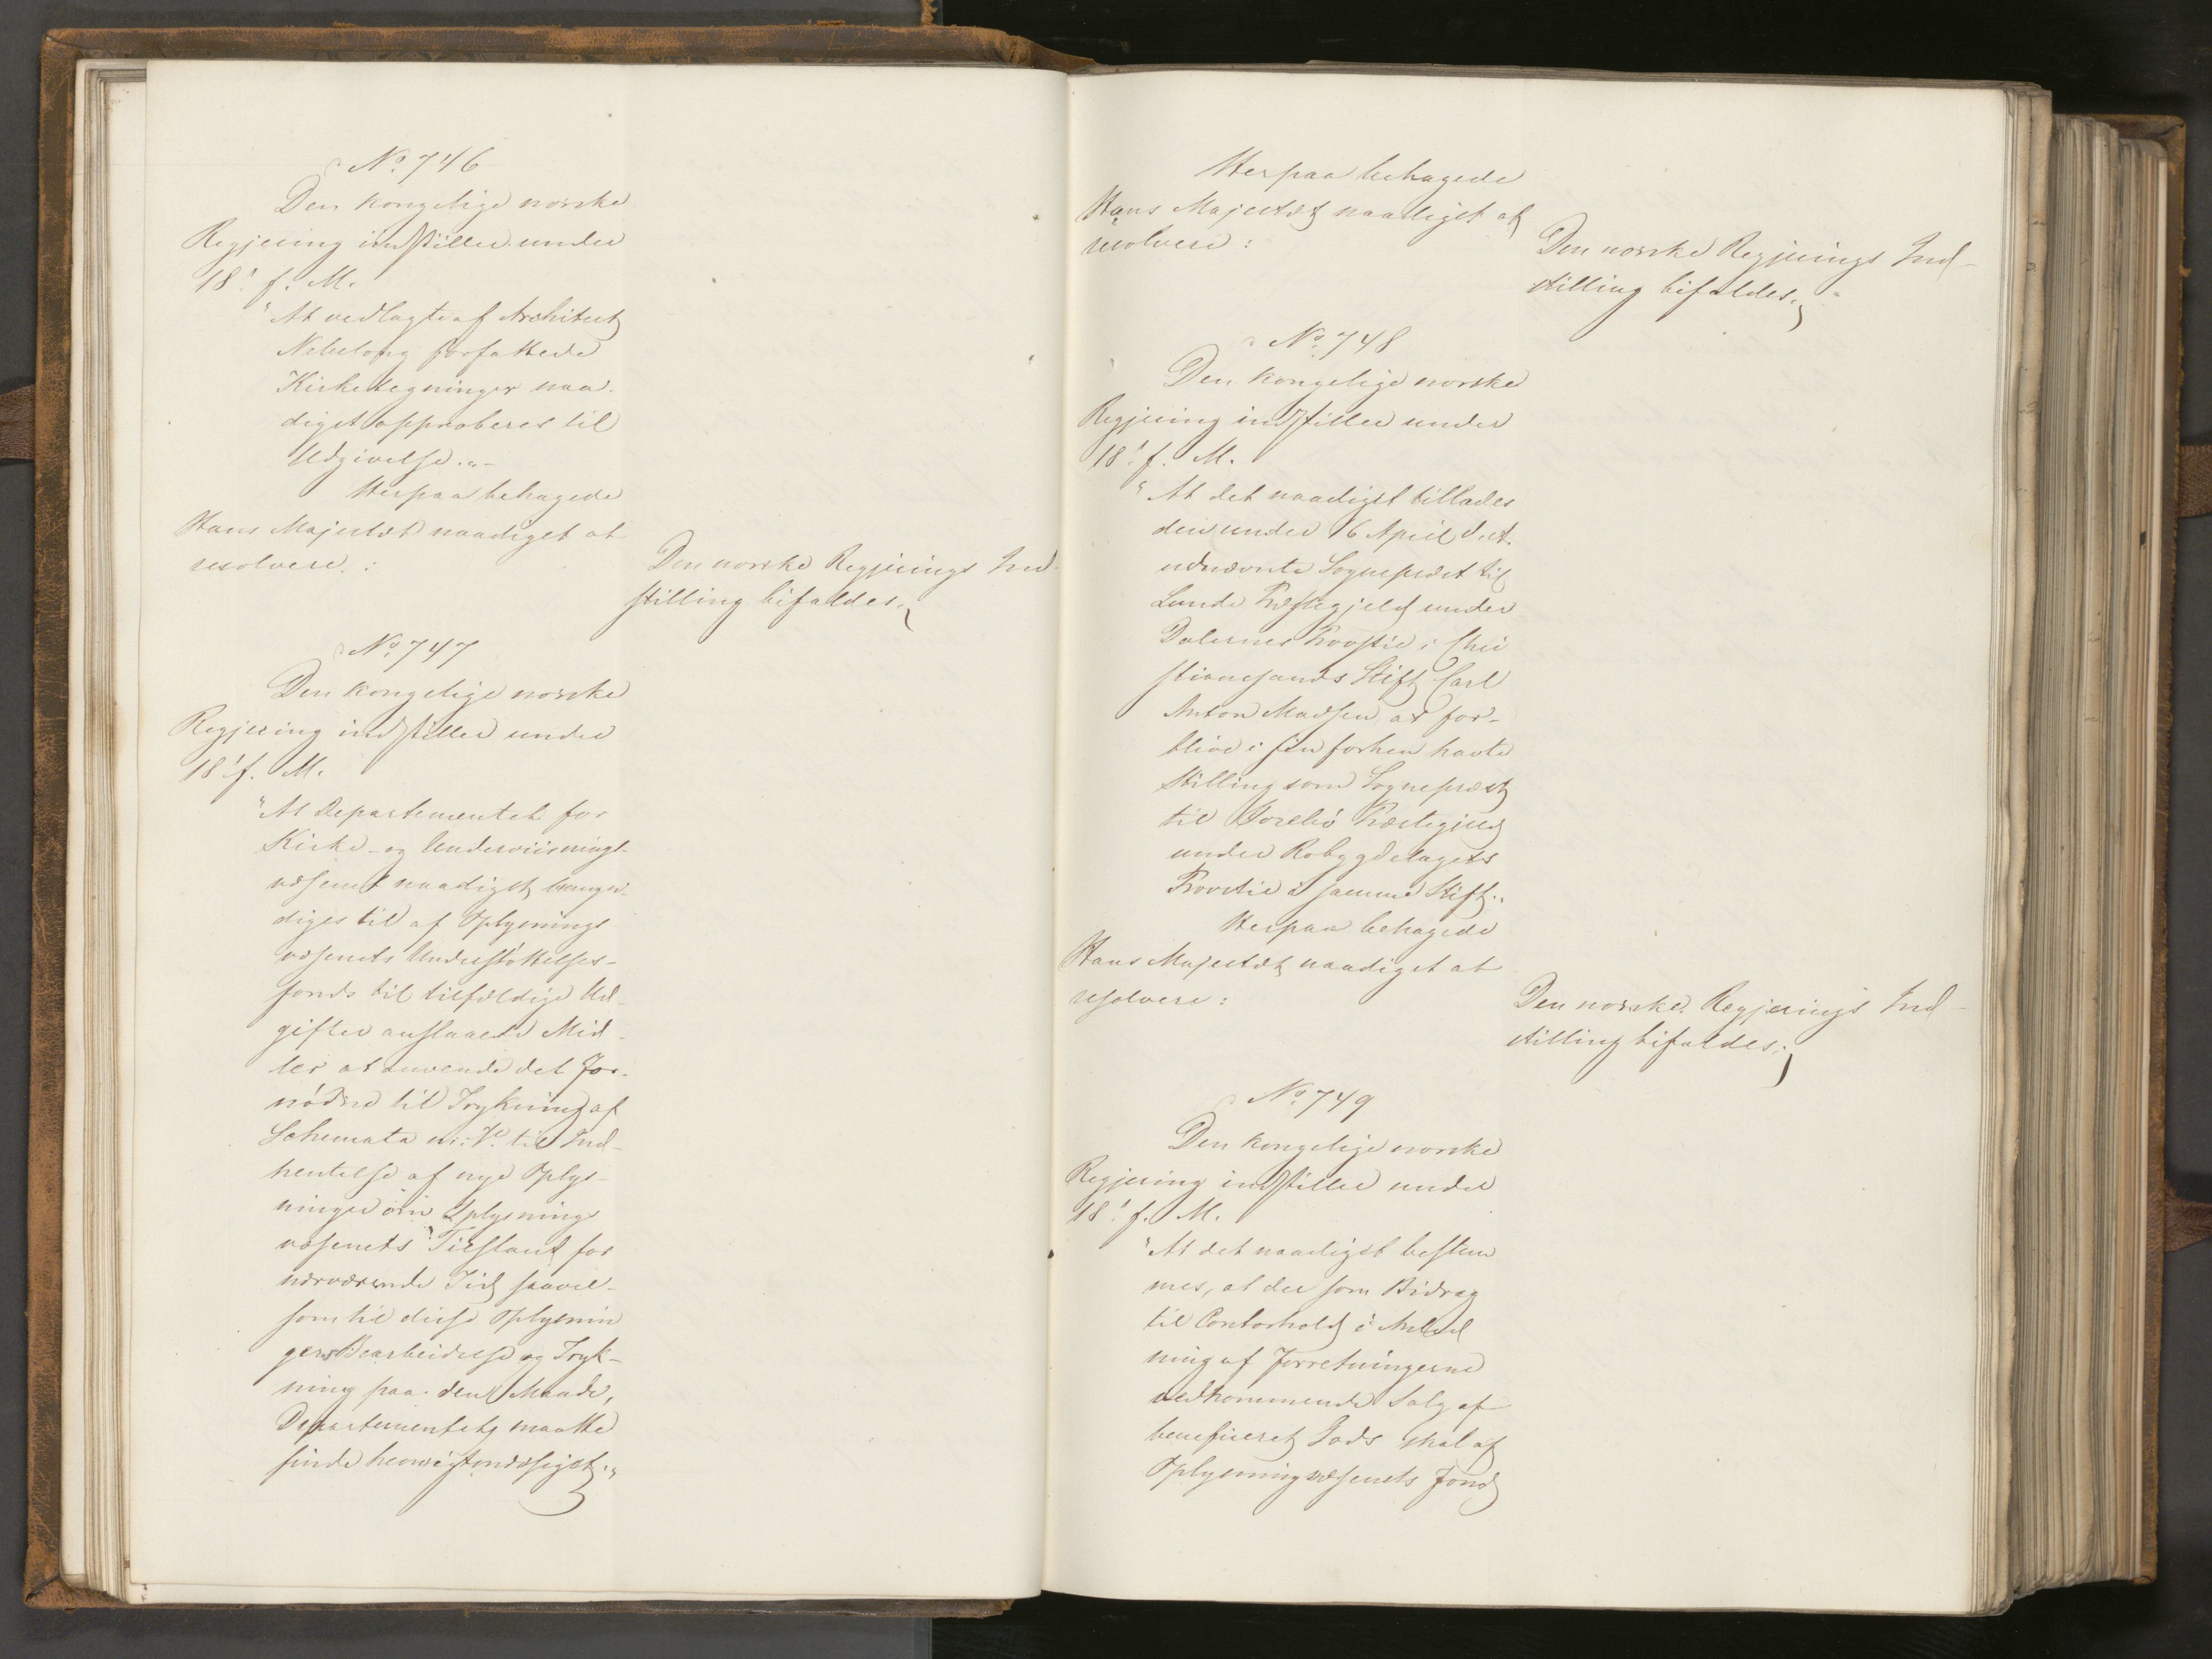 No 746
Den kongelige norske
Regjering indstiller under
18' f. M.
"At vedlagte af Architect
Nebelong forfattede
Kirketegninger naa-
digst approberes til
Udgivelse."-
Herpaa behagede
Hans Majestæt naadigst at
resolvere:
Den norske Regjerings Ind-
stilling bifaldes.
No 747
Den kongelige norske
Regjering indstiller under
18' f. M.
"At Departementet for
Kirke- og Underviisnings-
væsenet naadigst bemyn-
diges til af Oplysnings
væsenets Understøttelses-
fonds til tilfældige Ud-
gifter anslaaede Mid-
ler at anvende det For-
nødne til Trykning af
Schemata m. V. til Ind-
hentelse af nye Oplys-
ninger om Oplysnings
væsenets Tilstand for
nærværende Tid saavel-
som til disse Oplysnin
gers Bearbeidelse og Tryk-
ning paa den Maade,
Departementet maatte
finde hensigtsmæssigst."
Herpaa behagede
Hans Majestæt naadigst at
resolvere:
Den norske Regjerings Ind-
stilling bifaldes.
No 748
Den kongelige norske
Regjering indstiller under
18' f. M.
"At det naadigst tillades
den under 16 April d. A.
udnævnte Sognepræst til
Lunde Præstegjeld under
Dalernes Provstie i Chri
stiansands Stift Carl
Anton Madsen at for-
blive i sin forhen havte
Stilling som Sognepræst
til Præstegjeld
under Robygdelagets
Provstie i samme Stift."
Herpaa behagede
Hans Majestæt naadigst at
resolvere:
Den norske Regjerings Ind-
stilling bifaldes.
No 749
Den kongelige norske
Regjering indstiller under
18' f. M.
"At det naadigst bestem
mes, at der som Bidrag
til Contorhold i Anled
ning af Forretningerne
vedkommende Salg af
beneficeret Gods skal af
Oplysningsvæsenets Fond